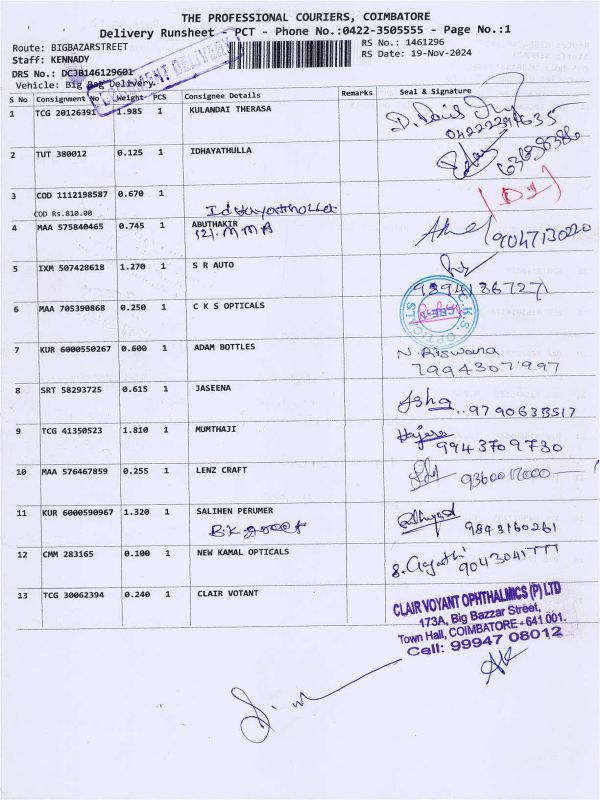 THE PROFESSIONAL COURIERS, COIMBATORE
Delivery Runsheet - PCT - Phone No.:0422-3505555 - Page No.:1
Route: BIGBAZARSTREET RS No.: 1461296
Staff: KENNADY RS Date: 19-Nov-2024
DRS No.: DCJB146129601
Vehicle: Big Bag Delivery.
DELIVERY
S No Consignment No Weight PCS Consignee Details Remarks Seal & Signature
1 TCG 20126391 1.985 1 KULANDAI THERASA
2 TUT 380012 0.125 1 IDHAYATHULLA
3 COD 1112198587 0.670 1
COD Rs.810.00 Idhayathullah
4 MAA 575840465 0.745 1 ABUTHAKIR 9047130020
121. MMA
5 IXM 507428618 1.270 1 S R AUTO
9394186727
6 MAA 705390868 0.250 1 C K S OPTICALS C.K.S. OPTICALS
7 KUR 6000550267 0.600 1 ADAM BOTTLES N. Aiswarya
7994307997
8 SRT 58293725 0.615 1 JASEENA Asha 9790633517
9 TCG 41350523 1.810 1 MUMTHAJI Hajara 9943709730
10 MAA 576467859 0.255 1 LENZ CRAFT 9360017000
11 KUR 6000590967 1.320 1 SALIHEN PERUMER 9843160261
12 CMM 283165 0.100 1 NEW KAMAL OPTICALS S. Gayathi 9043041777
13 TCG 30062394 0.240 1 CLAIR VOTANT
CLAIR VOYANT OPHTHALMICS (P) LTD
173A, Big Bazzar Street,
Town Hall, COIMBATORE - 641 001.
Cell: 99947 08012